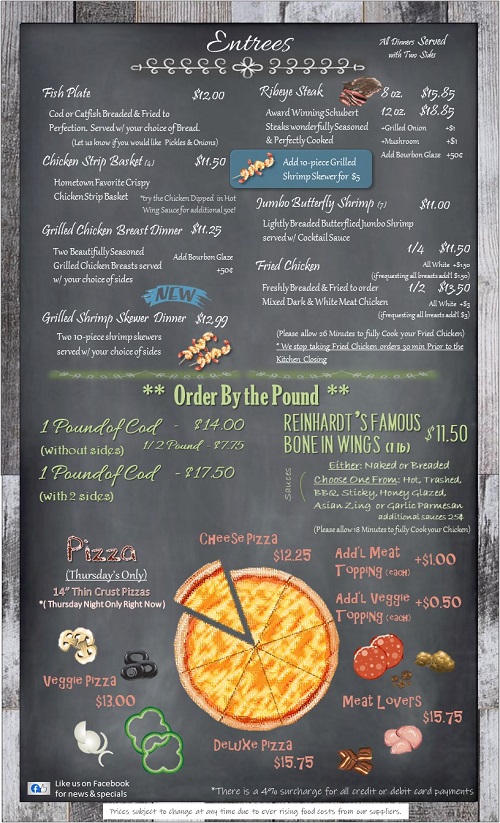 Entrees
All Dinners Served
with Two Sides
Fish Plate $12.00
Cod or Catfish Breaded & Fried to
Perfection. Served w/ your choice of Bread.
(Let us know if you would like Pickles & Onions)
Chicken Strip Basket (4) $11.50
Hometown Favorite Crispy
Chicken Strip Basket
*try the Chicken Dipped in Hot
Wing Sauce for additional 50¢!
Grilled Chicken Breast Dinner $11.25
Two Beautifully Seasoned
Grilled Chicken Breasts served
w/ your choice of sides
Add Bourbon Glaze
+50¢
NEW
Grilled Shrimp Skewer Dinner $12.99
Two 10-piece shrimp skewers
served w/ your choice of sides
Ribeye Steak 8 oz. $15.85
12 oz. $18.85
Award Winning Schubert
Steaks wonderfully Seasoned
& Perfectly Cooked
+Grilled Onion +$1
+Mushroom +$1
Add Bourbon Glaze +50¢
Add 10-piece Grilled
Shrimp Skewer for $5
Jumbo Butterfly Shrimp (7) $11.00
Lightly Breaded Butterflied Jumbo Shrimp
served w/ Cocktail Sauce
1/4 $11.50
Fried Chicken
All White +$1.50
(if requesting all breasts add'l $1.50)
Freshly Breaded & Fried to order
Mixed Dark & White Meat Chicken
1/2 $13.50
All White +$3
(if requesting all breasts add'l $3)
(Please allow 26 Minutes to fully Cook your Fried Chicken)
* We stop taking Fried Chicken orders 30 min Prior to the
Kitchen Closing
** Order By the Pound **
1 Pound of Cod - $14.00
(without sides) 1/2 Pound - $7.75
1 Pound of Cod - $17.50
(with 2 sides)
REINHARDT'S FAMOUS
BONE IN WINGS (1 lb) $11.50
Sauces
Either: Naked or Breaded
Choose One From: Hot, Trashed,
BBQ, Sticky, Honey Glazed,
Asian Zing or Garlic Parmesan
additional sauces 25¢
(Please allow 18 Minutes to fully Cook your Chicken)
Pizza
(Thursday's Only)
14" Thin Crust Pizzas
*( Thursday Night Only Right Now )
Cheese Pizza
$12.25
Add'l Meat
Topping (each) +$1.00
Add'l Veggie
Topping (each) +$0.50
Veggie Pizza
$13.00
Meat Lovers
$15.75
Deluxe Pizza
$15.75
Like us on Facebook
for news & specials
*There is a 4% surcharge for all credit or debit card payments
Prices subject to change at any time due to ever rising food costs from our suppliers.